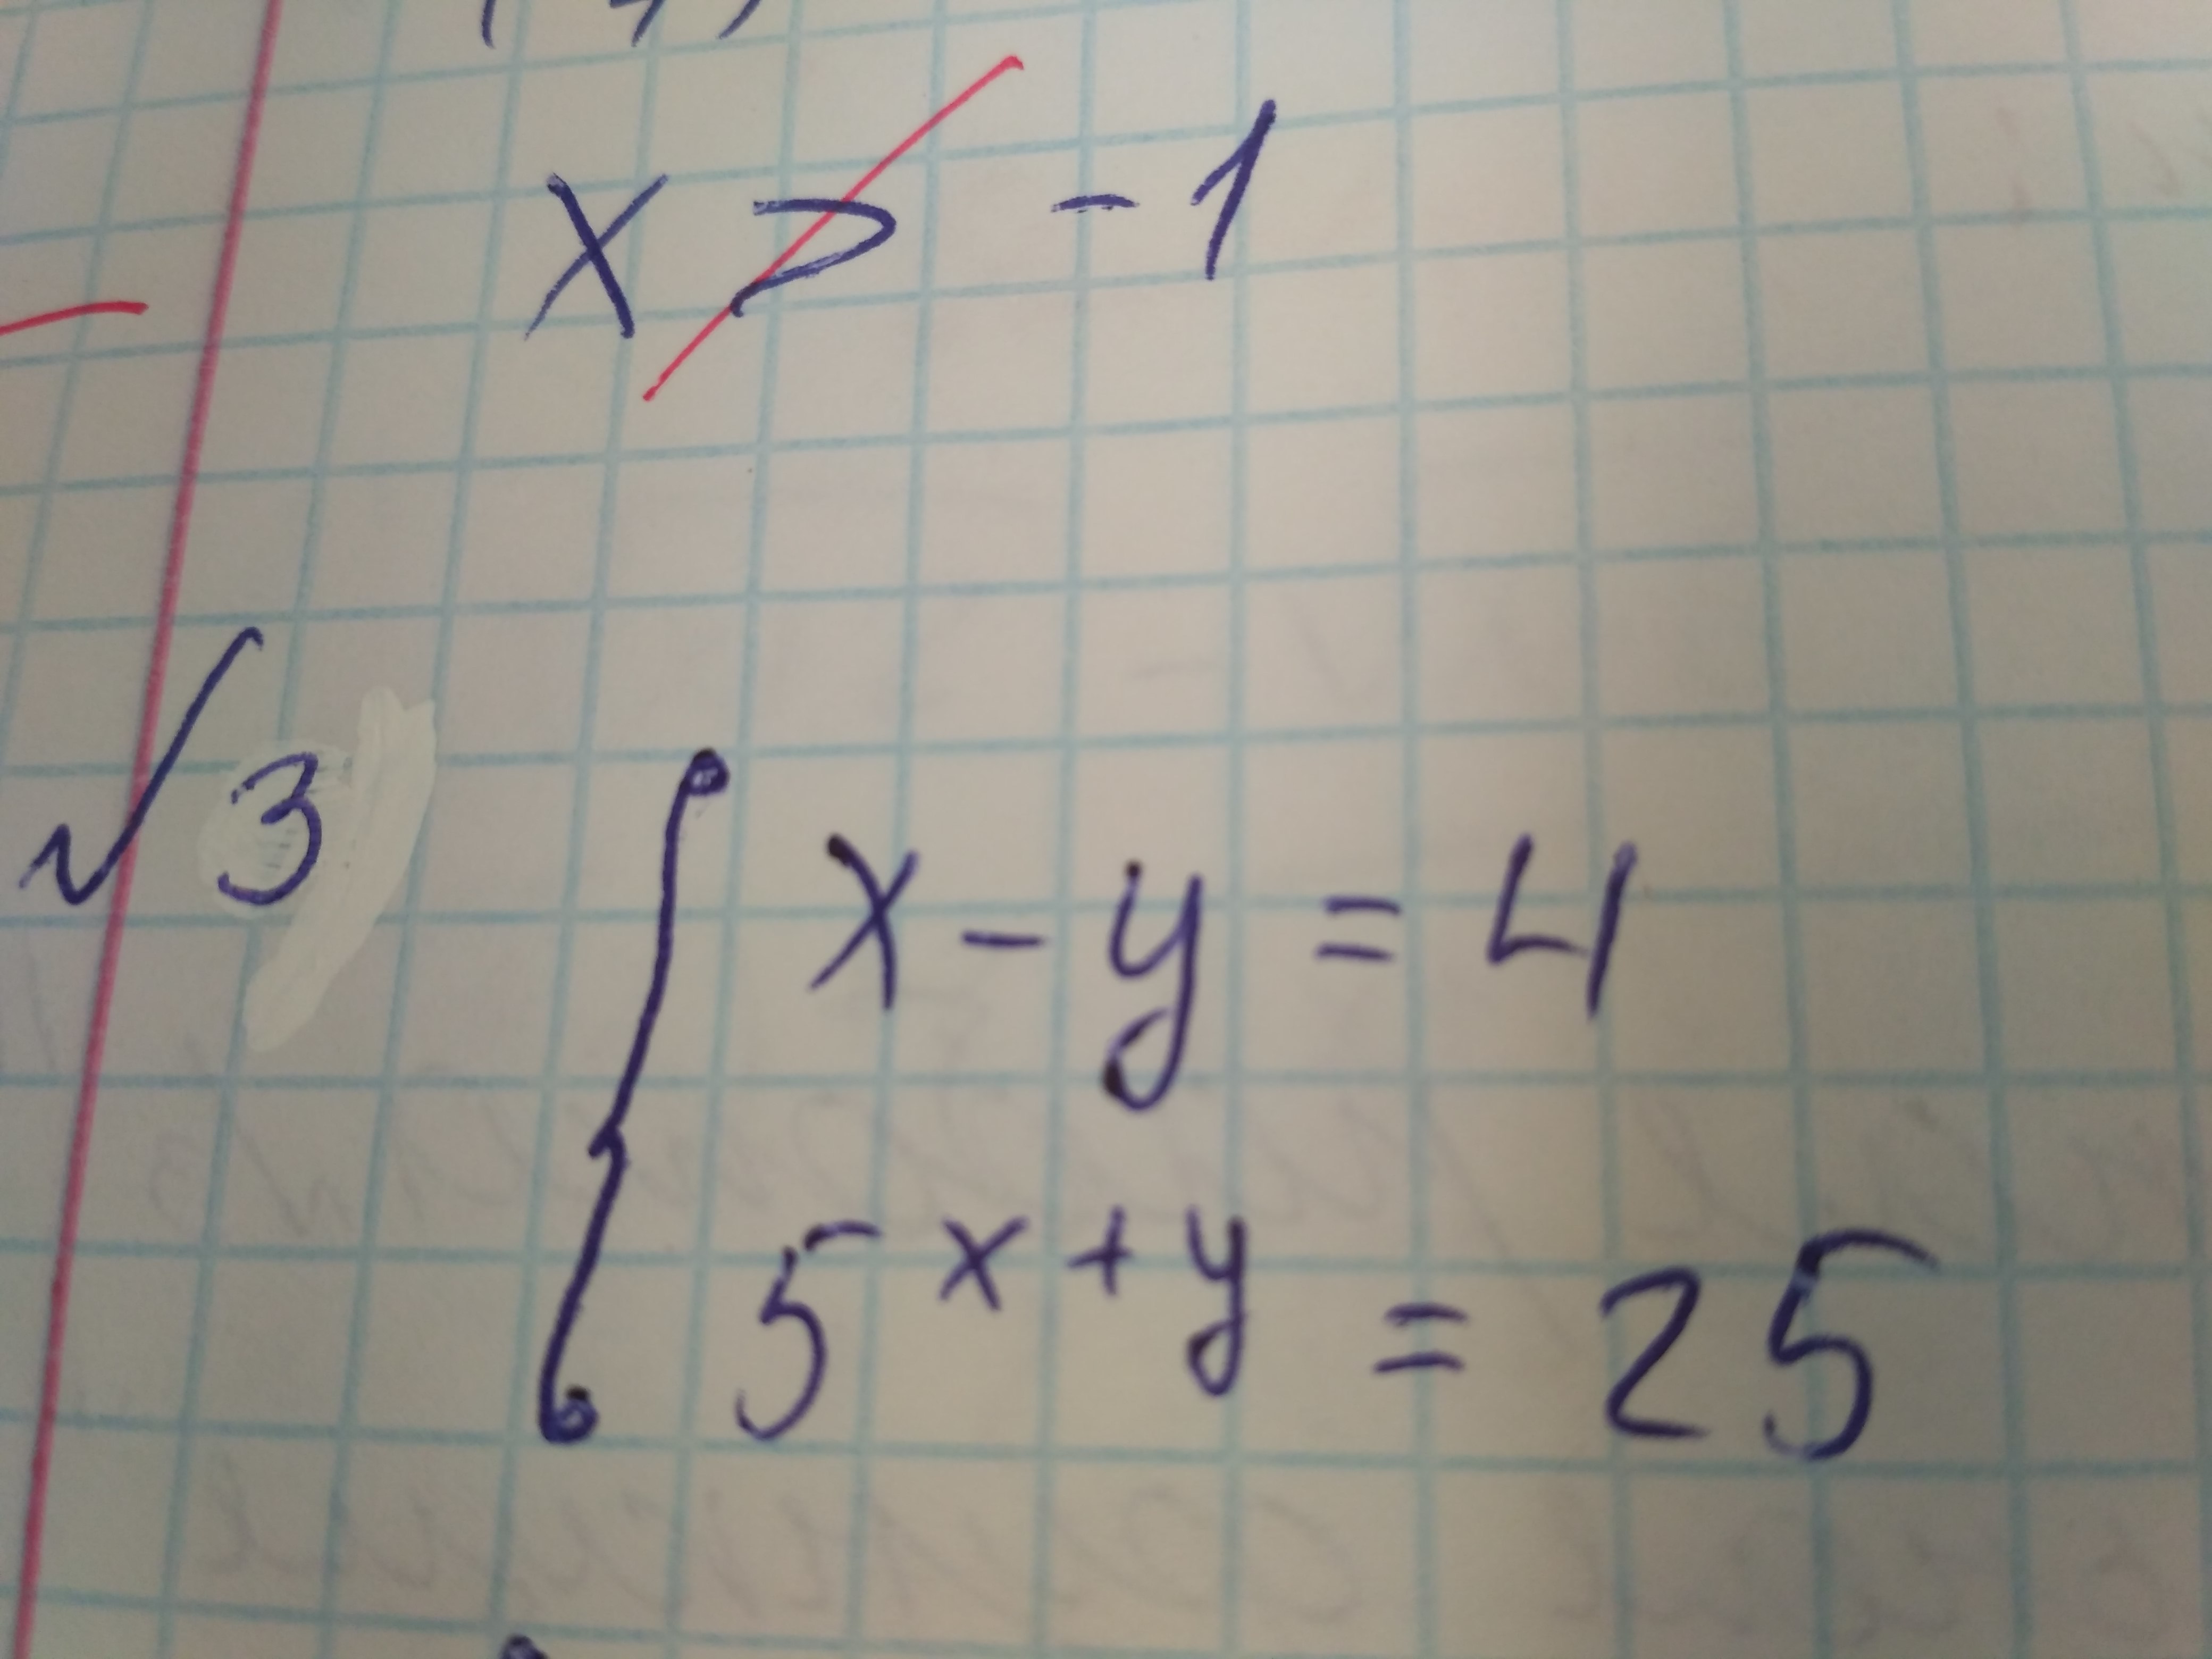 x > -1
√3
x - y = 4
5^{x+y} = 25